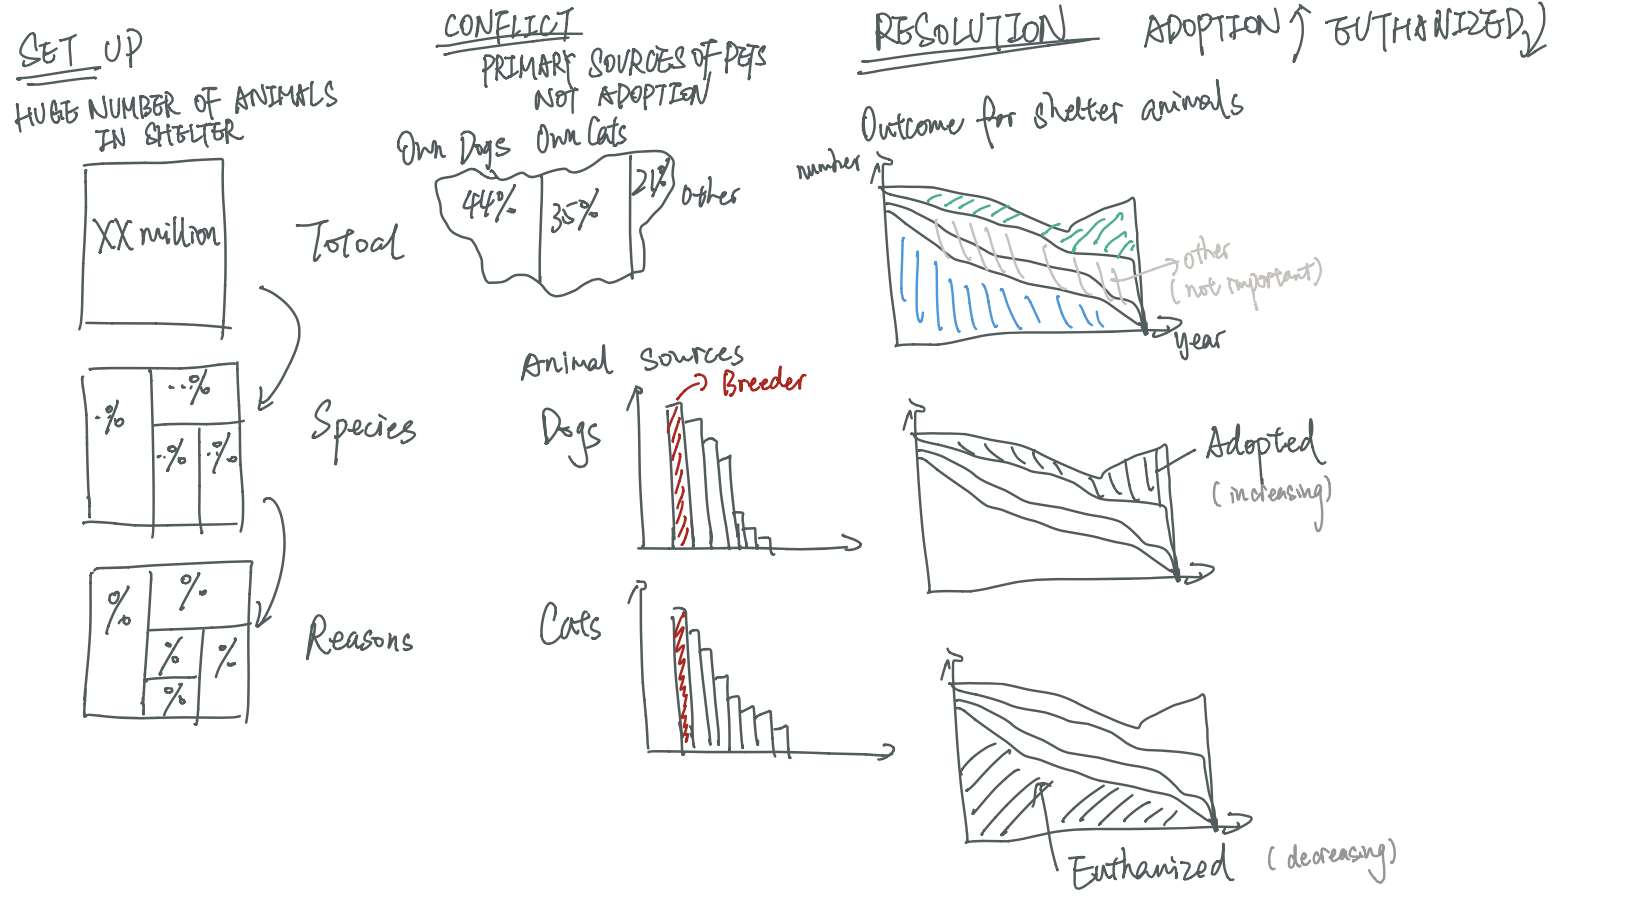 SET UP
HUGE NUMBER OF ANIMALS
IN SHELTER
XX million
Totoal
..%
...%
..%
..%
Species
%
%
%
%
%
Reasons
CONFLICT
PRIMARY SOURCES OF PETS
NOT ADOPTION
Own Dogs Own Cats
44%
35%
21%
other
Animal Sources
Breeder
Dogs
Cats
RESOLUTION ADOPTION ↑ EUTHANIZED ↓
Outcome for shelter animals
number
other
(not important)
year
Adopted
(increasing)
Euthanized
(decreasing)